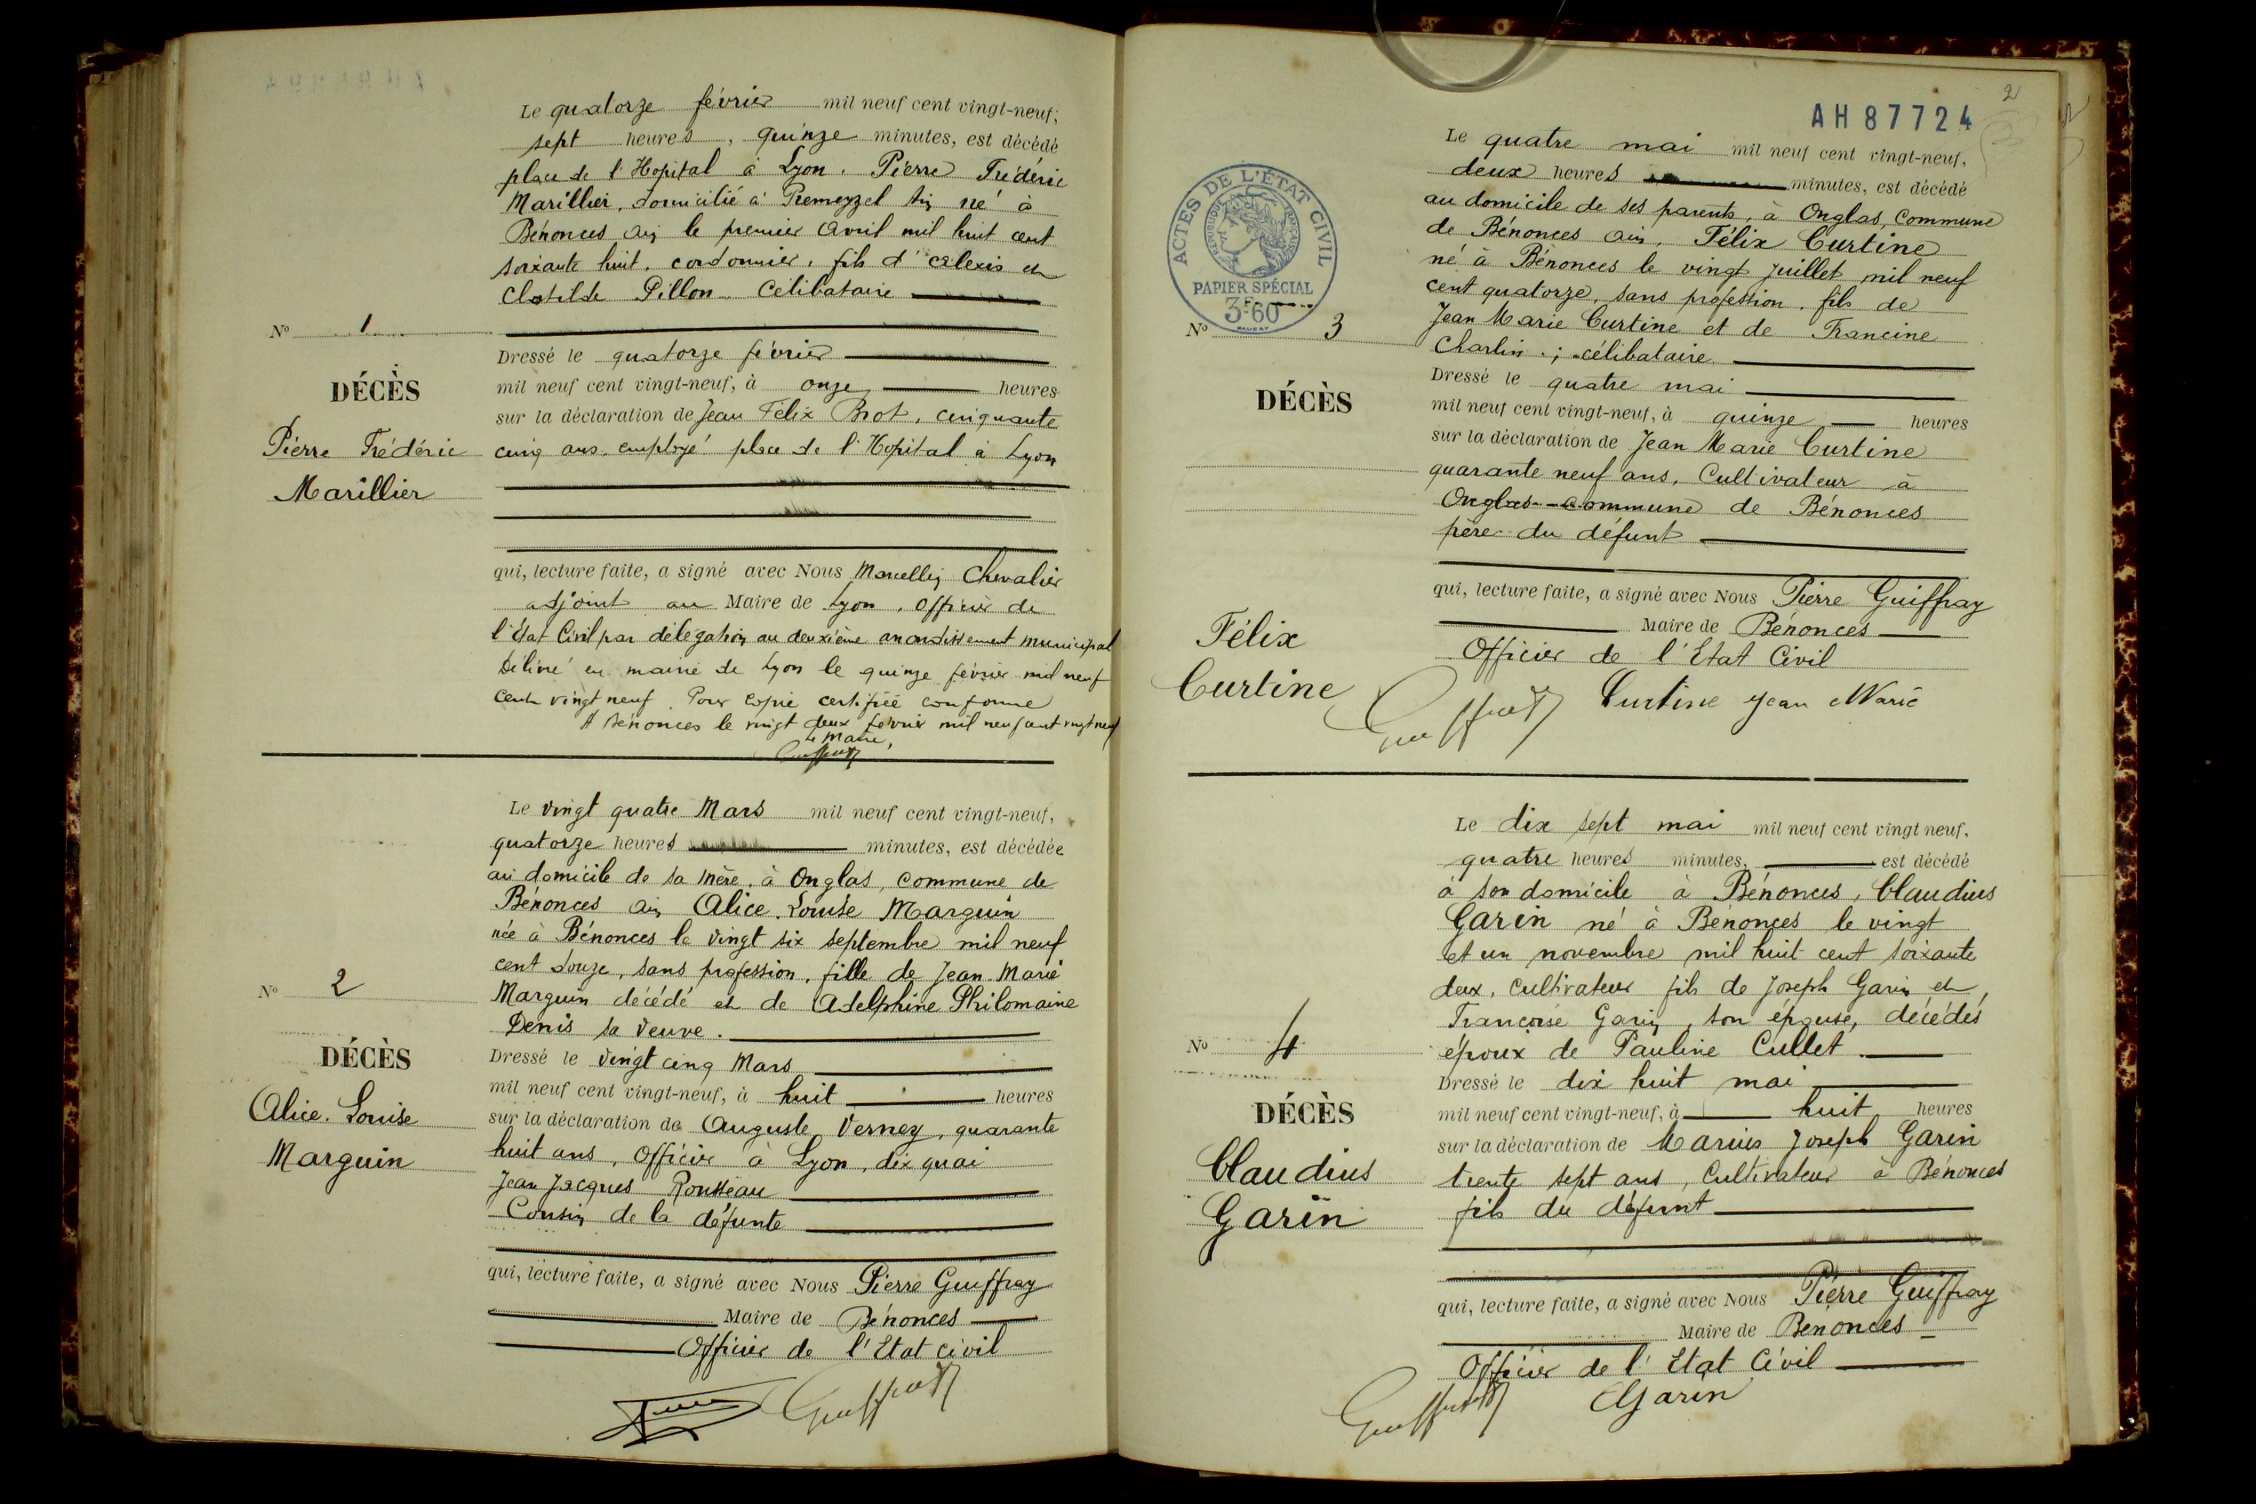 Le quatorze février mil neuf cent vingt-neuf,
sept heures, quinze minutes, est décédé
place de l'Hopital à Lyon. Pierre Frédéric
Marillier, domicilié à Premeyzel Ain né à
Bénonces Ain le premier Avril mil huit cent
soixante huit. cordonnier. fils d'Alexis et
Clotilde Pillon. Célibataire
Nº 1
DÉCÈS
Pierre Frédéric
Marillier
Dressé le quatorze février
mil neuf cent vingt-neuf, à onze heures
sur la déclaration de Jean Félix Brot, cinquante
cinq ans. employé place de l'Hopital à Lyon
qui, lecture faite, a signé avec Nous Marcellin Chevalier
adjoint au Maire de Lyon, Officier de
l'État Civil par délégation au deuxième arrondissement municipal
Délivré en mairie de Lyon le quinze février mil neuf
cent vingt neuf. Pour copie certifiée conforme
A Bénonces le vingt deux février mil neuf cent vingt neuf
Le Maire,
Guiffray
Le vingt quatre Mars mil neuf cent vingt-neuf,
quatorze heures minutes, est décédée
au domicile de sa mère. à Onglas, commune de
Bénonces Ain Alice. Louise Marguin
née à Bénonces le vingt six septembre mil neuf
cent douze, sans profession. fille de Jean Marie
Marguin décédé et de Adelphine Philomaine
Denis sa veuve.
Nº 2
DÉCÈS
Alice. Louise
Marguin
Dressé le vingt cinq Mars
mil neuf cent vingt-neuf, à huit heures
sur la déclaration de Auguste Verney, quarante
huit ans, Officier à Lyon, dix quai
Jean Jacques Rousseau
Cousin de la défunte
qui, lecture faite, a signé avec Nous Pierre Guiffray
Maire de Bénonces
Officier de l'Etat civil
Guiffray
2
AH87724
Le quatre mai mil neuf cent vingt-neuf,
deux heures minutes, est décédé
au domicile de ses parents, à Onglas, Commune
de Bénonces Ain. Félix Curtine
né à Bénonces le vingt juillet mil neuf
cent quatorze, sans profession. fils de
Jean Marie Curtine et de Francine
Charlin.; célibataire
ACTES DE L'ÉTAT CIVIL
RÉPUBLIQUE FRANÇAISE
PAPIER SPÉCIAL
3F60
Nº 3
DÉCÈS
Félix
Curtine
Dressé le quatre mai
mil neuf cent vingt-neuf, à quinze heures
sur la déclaration de Jean Marie Curtine
quarante neuf ans, Cultivateur à
Onglas commune de Bénonces
père du défunt
qui, lecture faite, a signé avec Nous Pierre Guiffray
Maire de Bénonces
Officier de l'Etat Civil
Guiffray Curtine Jean Marie
Le dix sept mai mil neuf cent vingt neuf,
quatre heures minutes, est décédé
à son domicile à Bénonces, Claudius
Garin né à Bénonces le vingt
et un novembre mil huit cent soixante
deux, cultivateur fils de Joseph Garin et
Françoise Garin, son épouse, décédés
époux de Pauline Cullet.
Nº 4
DÉCÈS
Claudius
Garin
Dressé le dix huit mai
mil neuf cent vingt-neuf, à huit heures
sur la déclaration de Marius Joseph Garin
trente sept ans, Cultivateur à Bénonces
fils du défunt
qui, lecture faite, a signé avec Nous Pierre Guiffray
Maire de Benonces
Officier de l'Etat Civil
Guiffray Garin